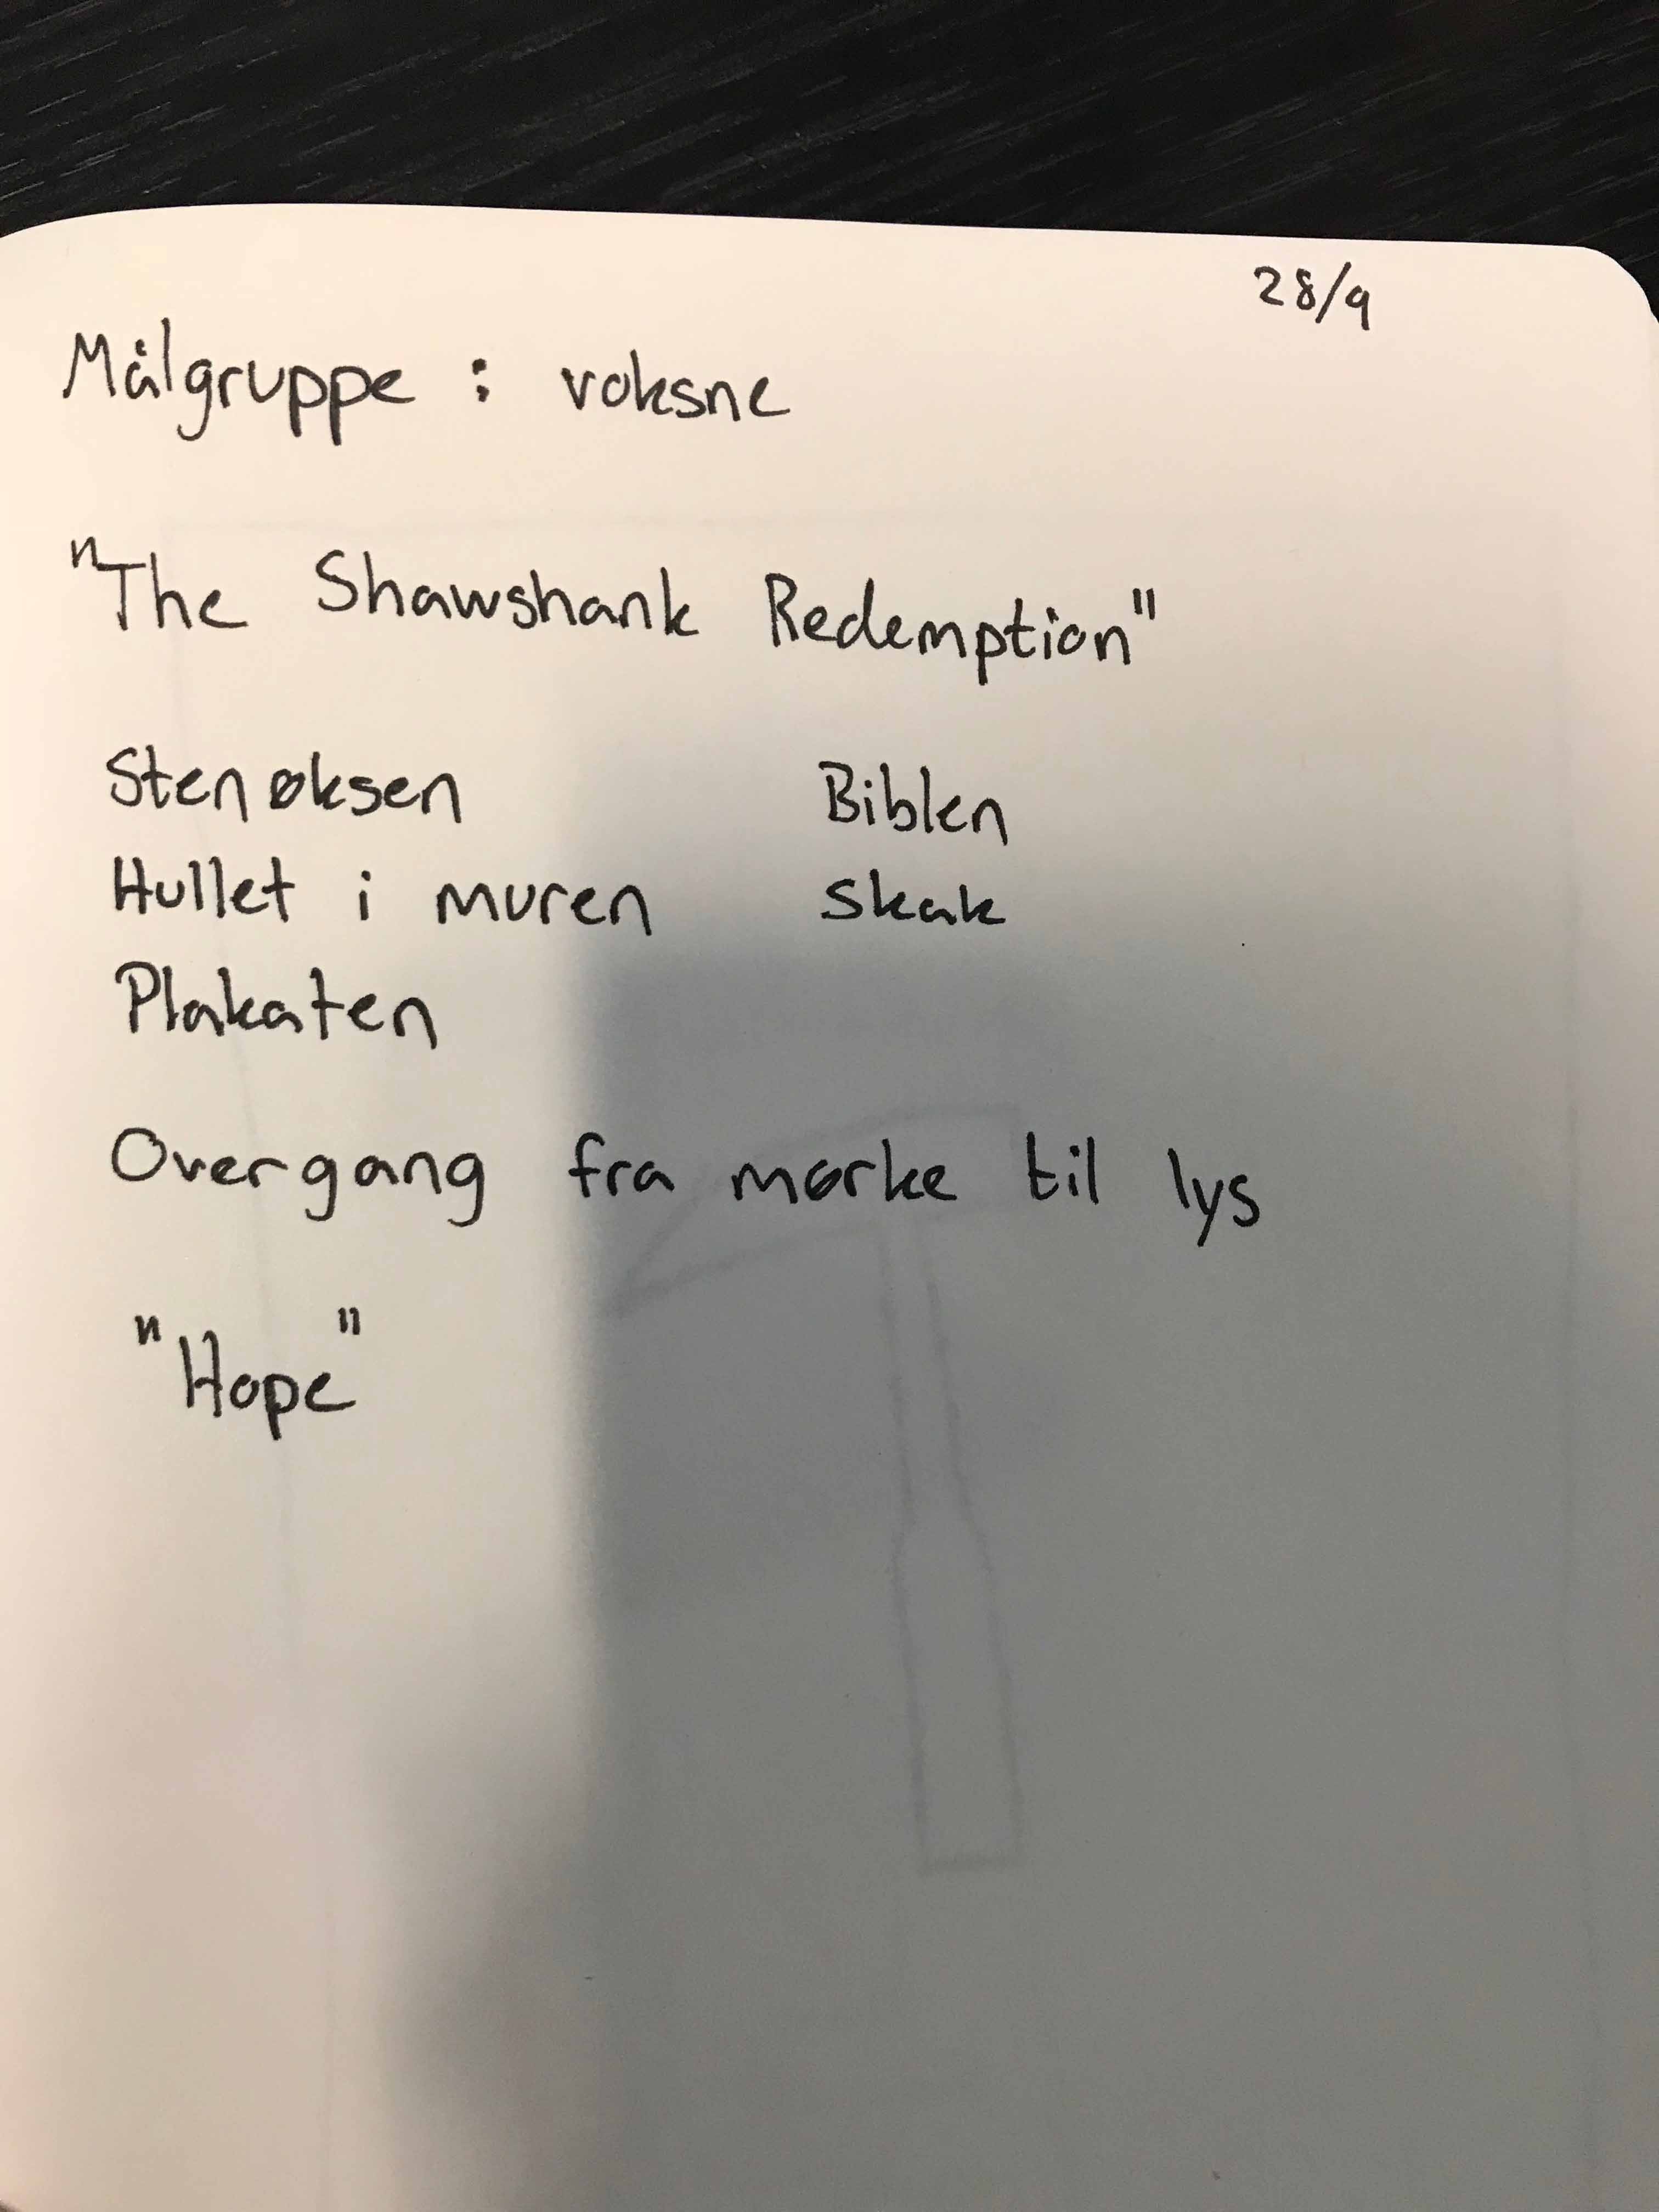 28/9
Målgruppe : voksne
"The Shawshank Redemption"
Stenøksen
Biblen
Hullet i muren
Skak
Plakaten
Overgang fra mørke til lys
"Hope"